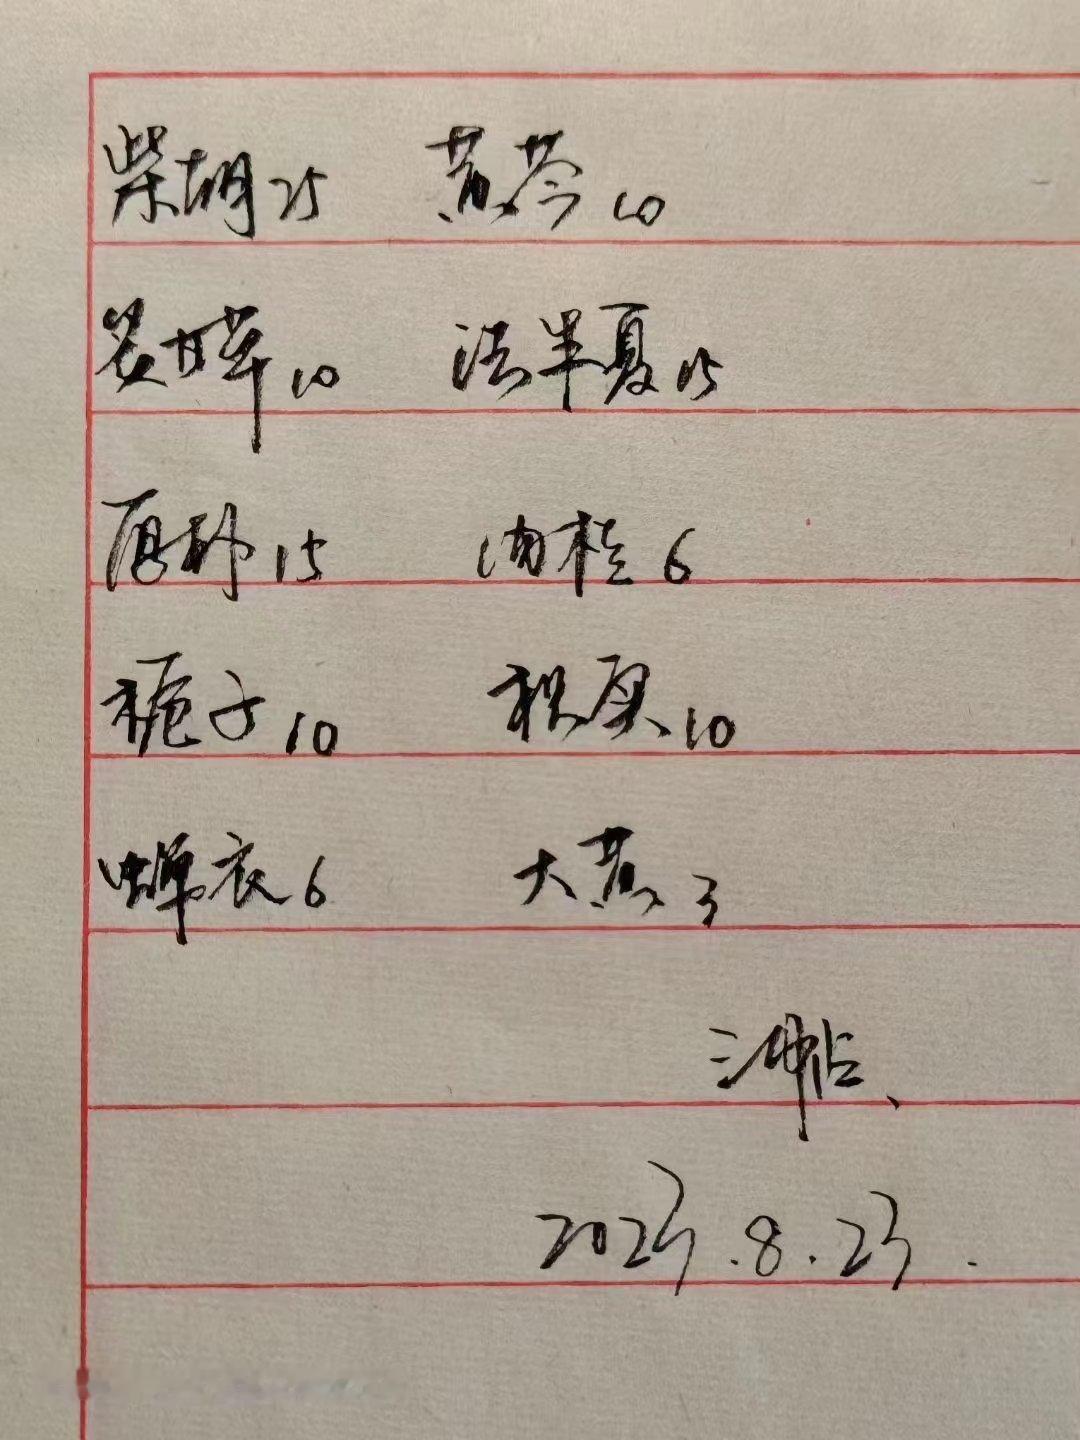 柴胡25 黄芩10
炙甘草10 法半夏15
厚朴15 肉桂6
栀子10 枳实10
蝉衣6 大黄3
三帖、
2023.8.23.